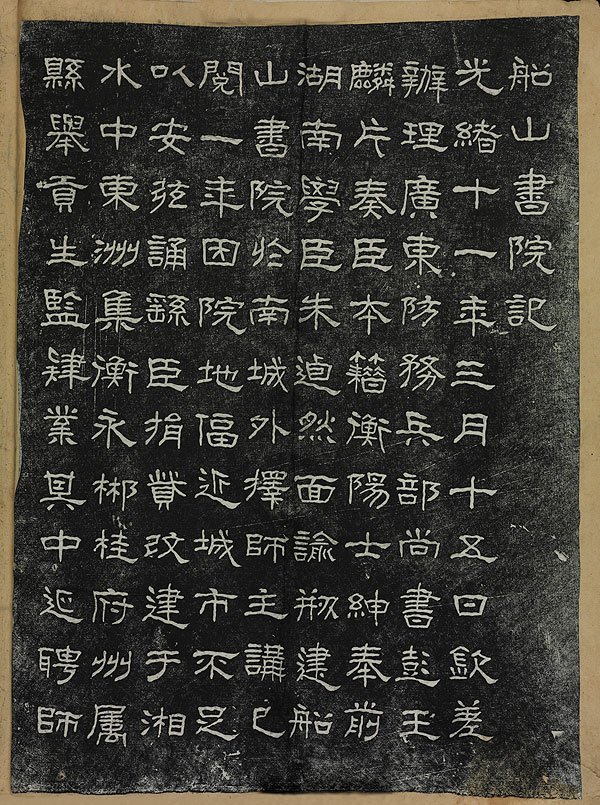 船山書院記
光緒十一年三月十五日欽差
辦理廣東防務兵部尚書彭玉
麟片奏臣本籍衡陽士紳奉前
湖南學臣朱逌然面諭刱建船
山書院於南城外擇師主講已
閱一年因院地偪近城市不足
以安弦誦繇臣捐貲改建于湘
水中東洲集衡永郴桂府州属
縣舉貢生監肄業其中延聘師